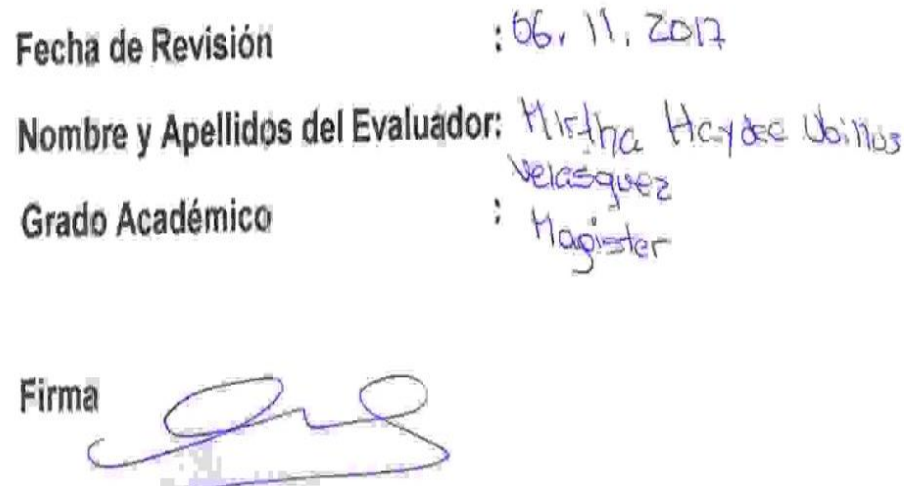 Fecha de Revisión : 06. 11. 2017
Nombre y Apellidos del Evaluador: Mirtha Haydee Ubillus
Velasquez
Grado Académico : Magister
Firma